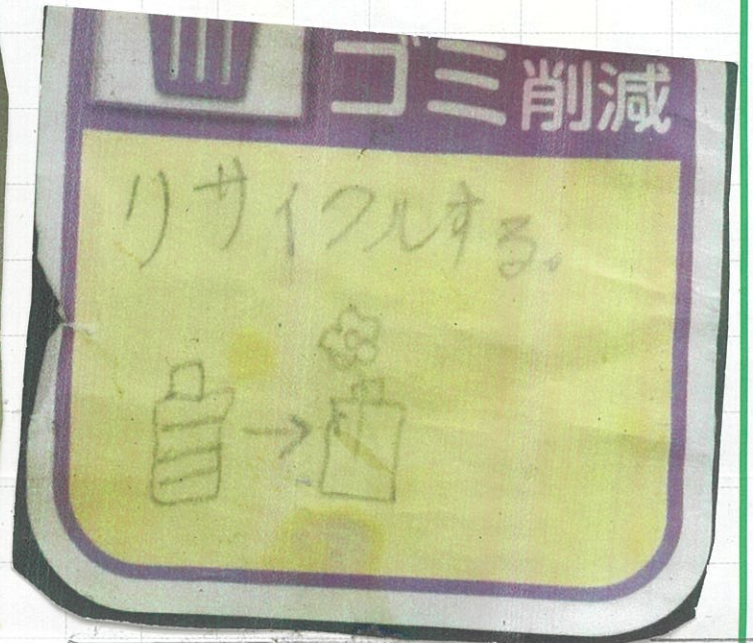 ゴミ削減
リサイクルする。